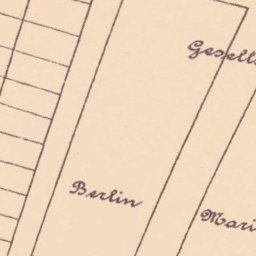 Gesells
Berlin
Mari